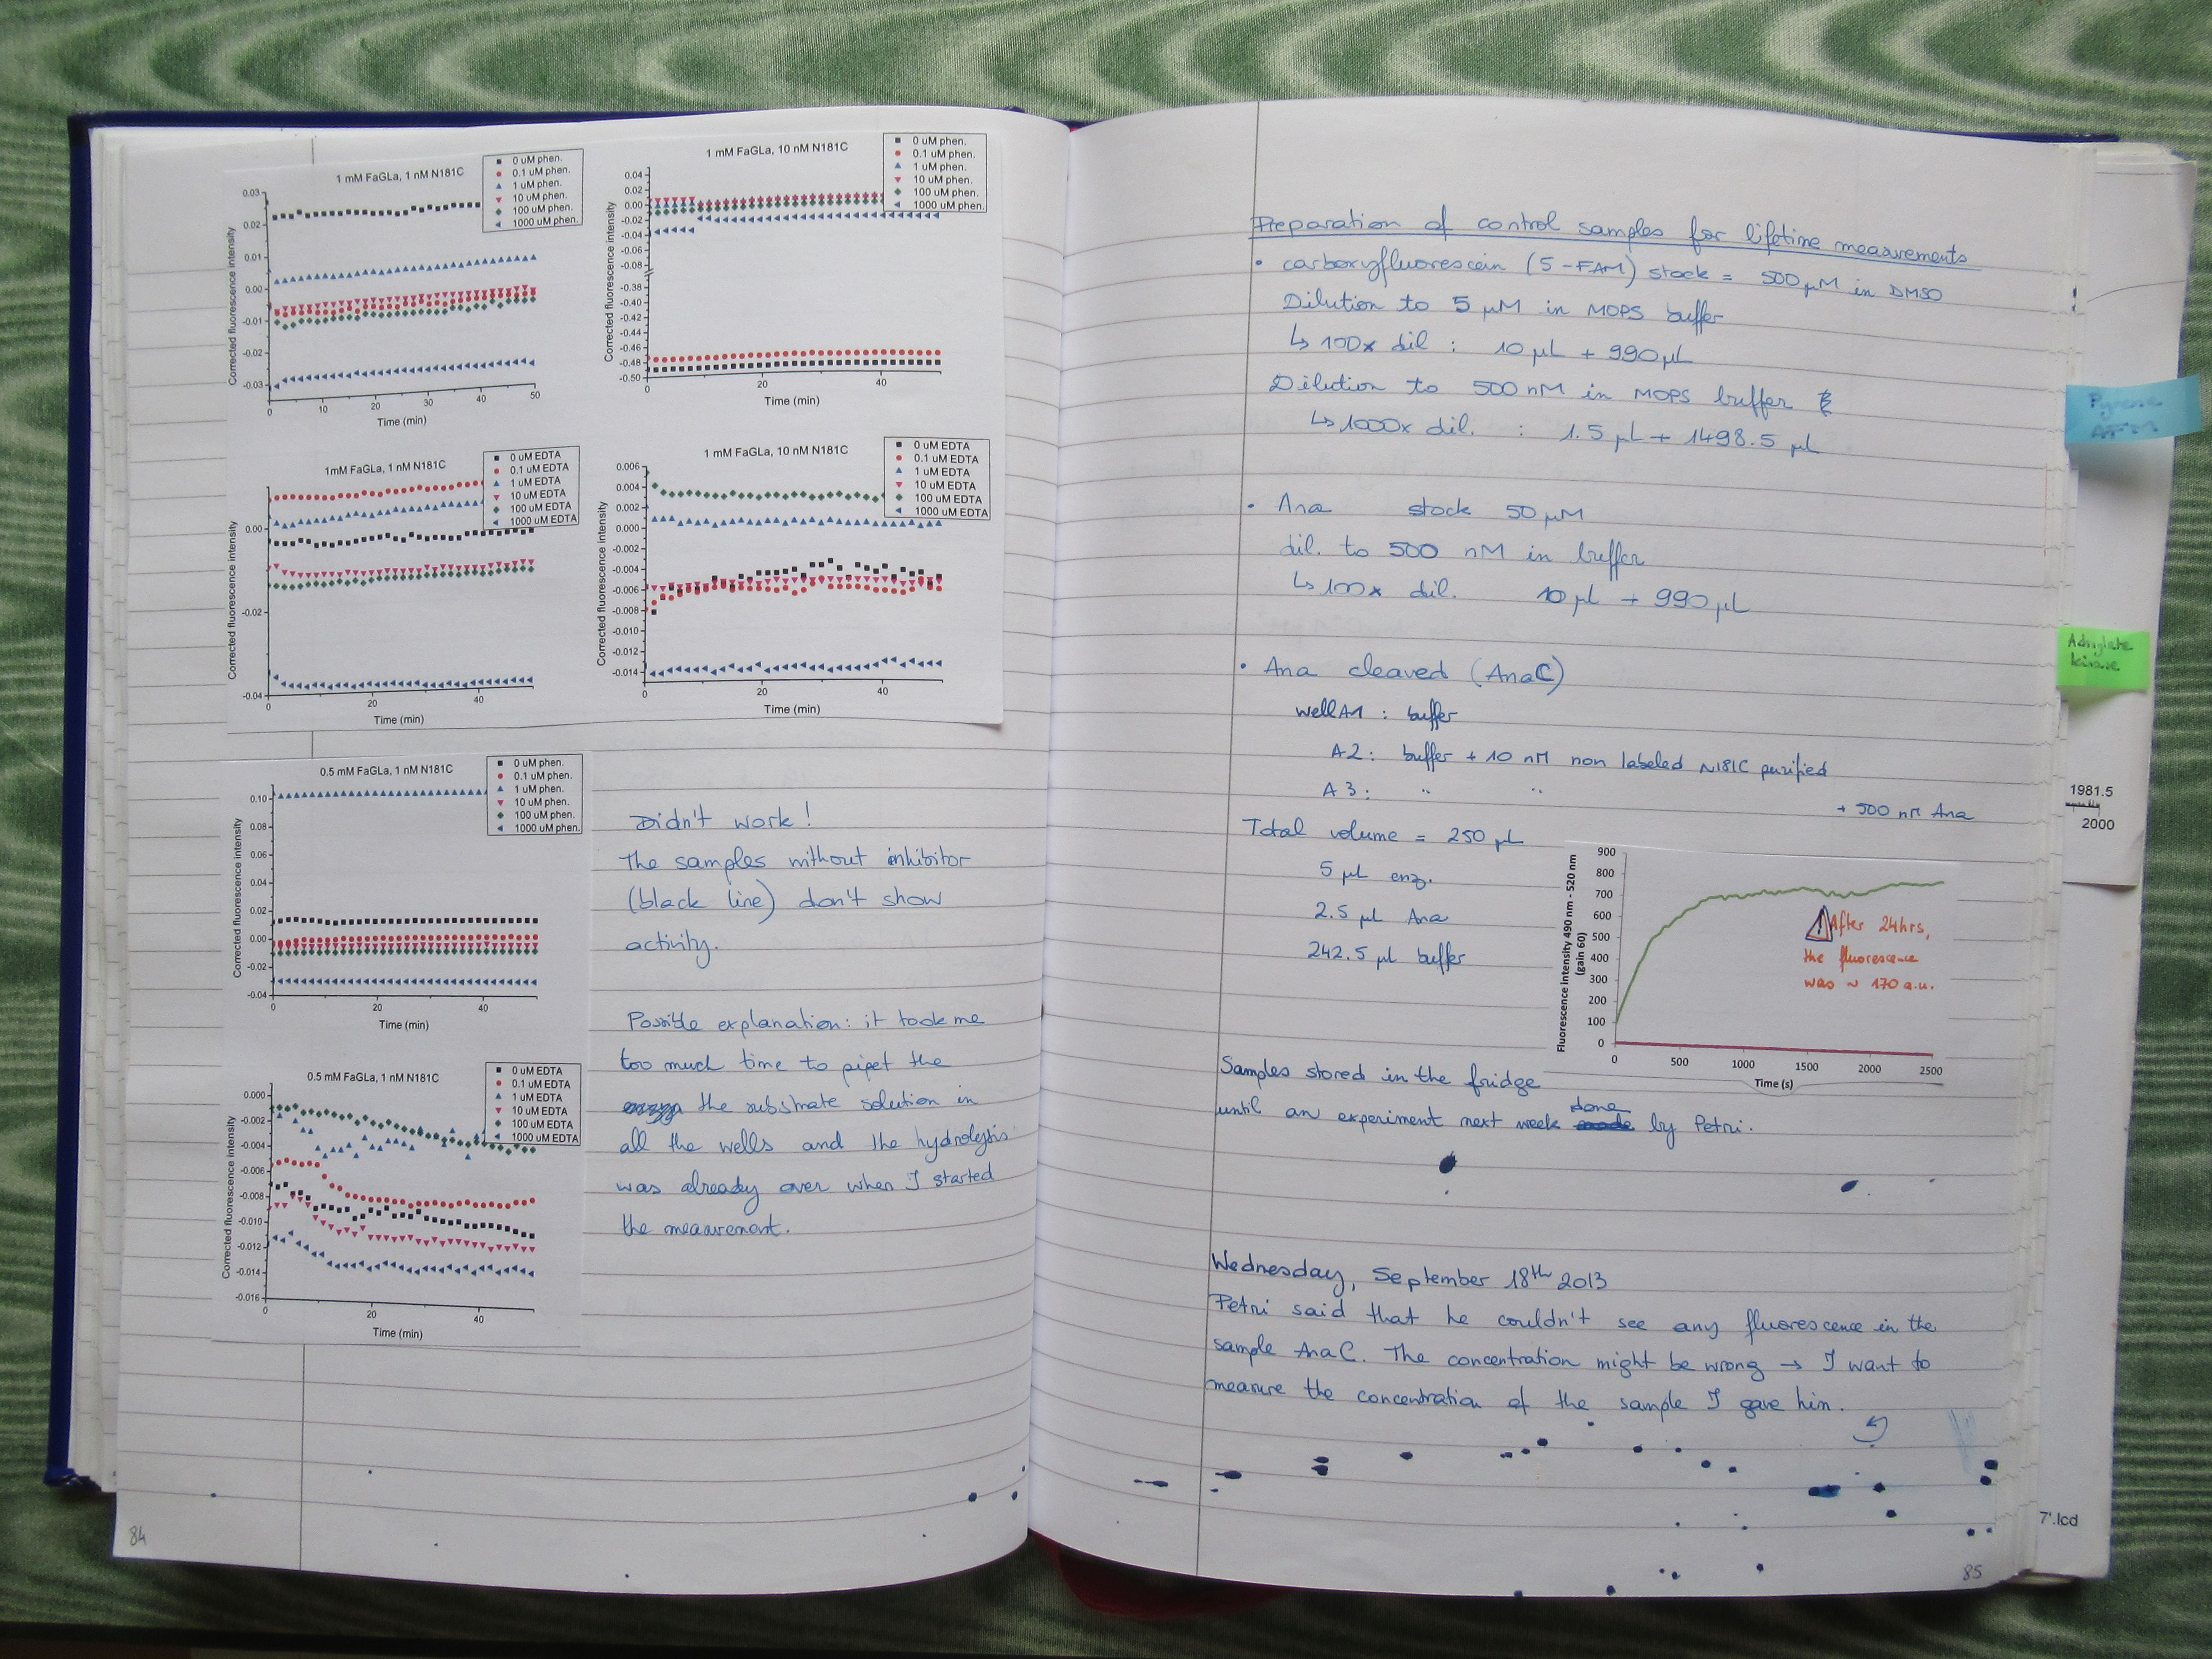 1 mM FaGLa, 1 nM N181C
0 uM phen.
0.1 uM phen.
1 uM phen.
10 uM phen.
100 uM phen.
1000 uM phen.
0.03
0.02
0.01
0.00
-0.01
-0.02
-0.03
Corrected fluorescence intensity
0 10 20 30 40 50
Time (min)
1 mM FaGLa, 10 nM N181C
0 uM phen.
0.1 uM phen.
1 uM phen.
10 uM phen.
100 uM phen.
1000 uM phen.
0.04
0.02
0.00
-0.02
-0.04
-0.06
-0.08
-0.38
-0.40
-0.42
-0.44
-0.46
-0.48
-0.50
Corrected fluorescence intensity
0 20 40
Time (min)
1mM FaGLa, 1 nM N181C
0 uM EDTA
0.1 uM EDTA
1 uM EDTA
10 uM EDTA
100 uM EDTA
1000 uM EDTA
0.00
-0.02
-0.04
Corrected fluorescence intensity
0 20 40
Time (min)
1 mM FaGLa, 10 nM N181C
0 uM EDTA
0.1 uM EDTA
1 uM EDTA
10 uM EDTA
100 uM EDTA
1000 uM EDTA
0.006
0.004
0.002
0.000
-0.002
-0.004
-0.006
-0.008
-0.010
-0.012
-0.014
Corrected fluorescence intensity
0 20 40
Time (min)
0.5 mM FaGLa, 1 nM N181C
0 uM phen.
0.1 uM phen.
1 uM phen.
10 uM phen.
100 uM phen.
1000 uM phen.
0.10
0.08
0.06
0.04
0.02
0.00
-0.02
-0.04
Corrected fluorescence intensity
0 20 40
Time (min)
0.5 mM FaGLa, 1 nM N181C
0 uM EDTA
0.1 uM EDTA
1 uM EDTA
10 uM EDTA
100 uM EDTA
1000 uM EDTA
0.000
-0.002
-0.004
-0.006
-0.008
-0.010
-0.012
-0.014
-0.016
Corrected fluorescence intensity
0 20 40
Time (min)
Didn't work!
The samples without inhibitor
(black line) don't show
activity.
Possible explanation: it took me
too much time to pipet the
the substrate solution in
all the wells and the hydrolysis
was already over when I started
the measurement.
84
Preparation of control samples for lifetime measurements
• carboxyfluorescein (5-FAM) stock = 500 µM in DMSO
Dilution to 5 µM in MOPS buffer
↳ 100x dil : 10 µL + 990 µL
Dilution to 500 nM in MOPS buffer
↳ 1000x dil. : 1.5 µL + 1498.5 µL
• Ana stock 50 µM
dil. to 500 nM in buffer
↳ 100x dil. 10 µL + 990 µL
• Ana cleaved (AnaC)
well A1 : buffer
A2 : buffer + 10 nM non labeled N181C purified
A3 : " "
+ 500 nM Ana
Total volume = 250 µL
5 µL enz.
2.5 µL Ana
242.5 µL buffer
Fluorescence intensity 490 nm - 520 nm
(gain 60)
900
800
700
600
500
400
300
200
100
0
0 500 1000 1500 2000 2500
Time (s)
After 24hrs,
the fluorescence
was ~ 170 a.u.
Samples stored in the fridge
until an experiment next week done by Petri.
Wednesday, September 18th 2013
Petri said that he couldn't see any fluorescence in the
sample AnaC. The concentration might be wrong → I want to
measure the concentration of the sample I gave him.
85
Pyrene
AFM
Adenylate
kinase
1981.5
2000
7'.lcd